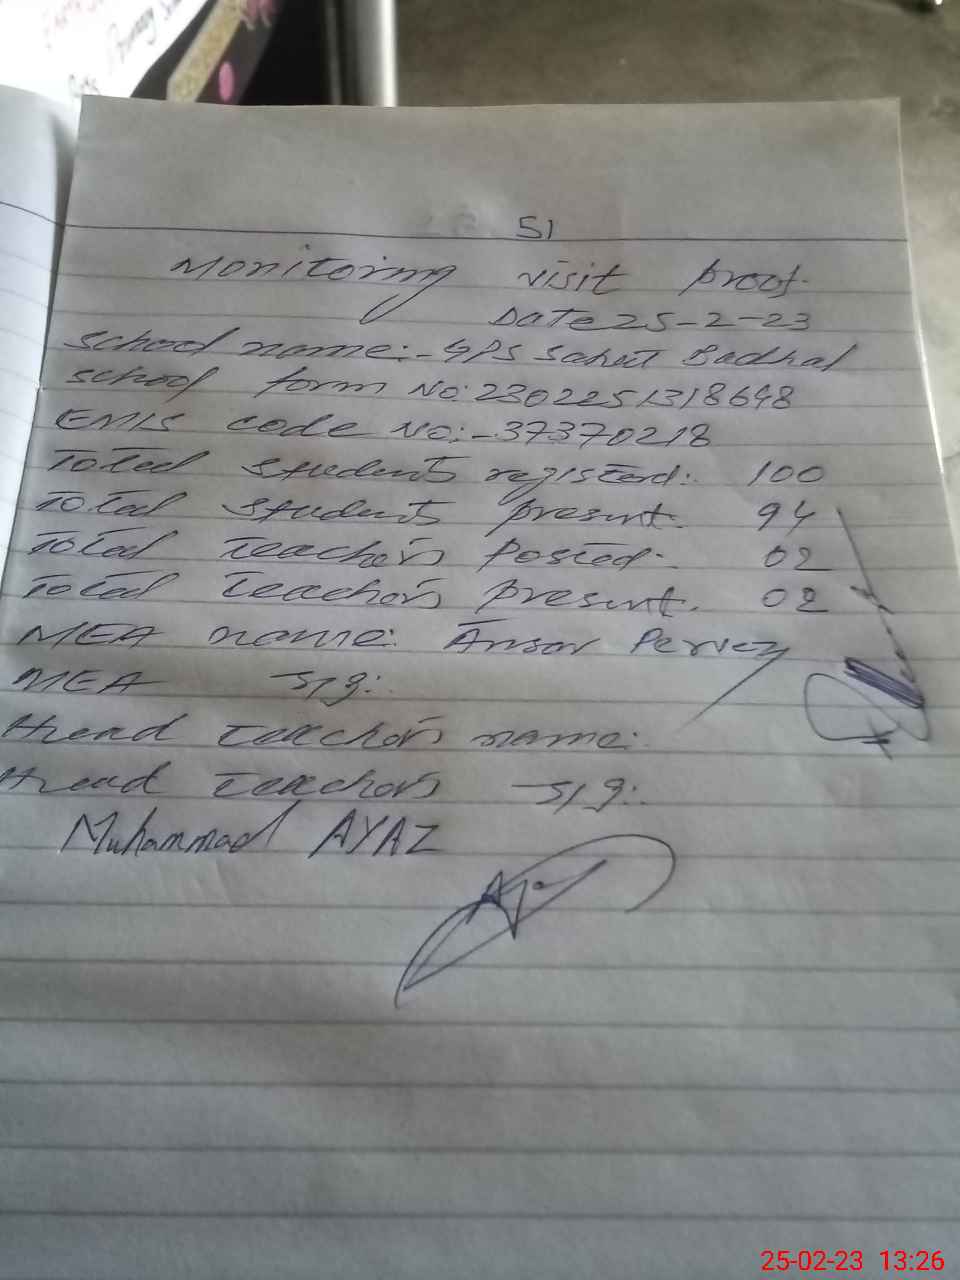 Primary
51
Monitoring visit proof.
Date 25-2-23
School name:- GPS Badhal
School form No: 2302251318648
EMIS code No:- 37370218
Total students registerd: 100
Total students present. 94
Total teachers Posted: 02
Total teachers present. 02
MEA name: Ansar Pervez
MEA sig:
Head teachers name:
Head teachers sig:
Muhammad AYAZ
25-02-23 13:26